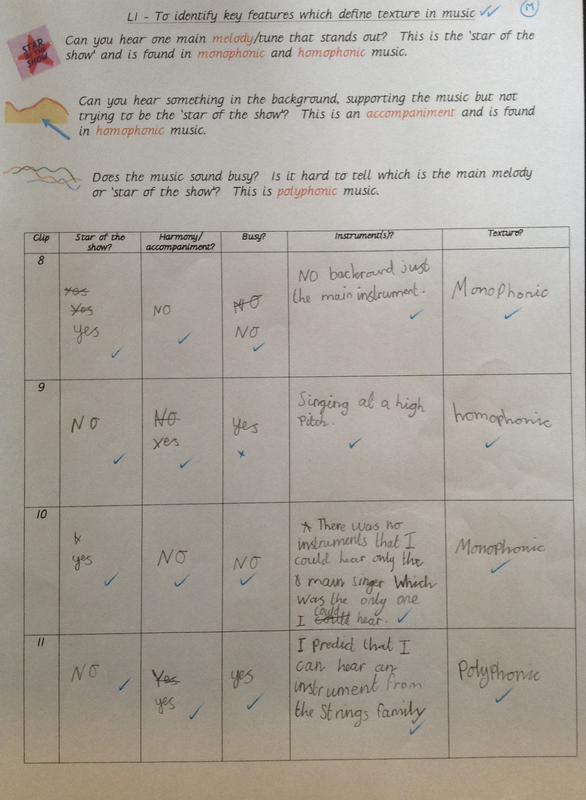 LI - To identify key features which define texture in music
M
STAR OF THE SHOW
Can you hear one main melody/tune that stands out? This is the 'star of the
show' and is found in monophonic and homophonic music.
Can you hear something in the background, supporting the music but not
trying to be the 'star of the show'? This is an accompaniment and is found
in homophonic music.
Does the music sound busy? Is it hard to tell which is the main melody
or 'star of the show'? This is polyphonic music.
Clip
Star of the
show?
Harmony/
accompaniment?
Busy?
Instrument(s)?
Texture?
8
Yes
Yes
yes
NO
NO
NO
NO backround just
the main instrument.
Monophonic
9
NO
NO
yes
yes
Singing at a high
Pitch.
homophonic
10
yes
NO
NO
There was no
instruments that I
could hear only the
main singer which
was the only one
could
I hear.
Monophonic
11
NO
Yes
yes
yes
I Predict that I
can hear an
instrument from
the Strings family
Polyphonic